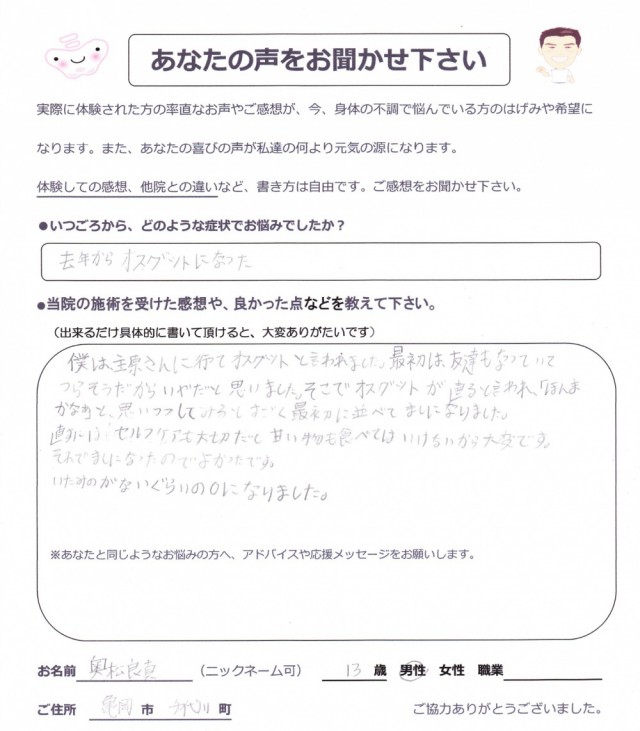 あなたの声をお聞かせ下さい
実際に体験された方の率直なお声やご感想が、今、身体の不調で悩んでいる方のはげみや希望に
なります。また、あなたの喜びの声が私達の何より元気の源になります。
体験しての感想、他院との違いなど、書き方は自由です。ご感想をお聞かせ下さい。
●いつごろから、どのような症状でお悩みでしたか？
去年からオスグットになった
●当院の施術を受けた感想や、良かった点などを教えて下さい。
（出来るだけ具体的に書いて頂けると、大変ありがたいです）
僕は さんに行てオスグットと言われました。最初は友達もなっていて
つらそうだからいやだと思いました。そこでオスグットが直ると言われ、「ほんま
かなあと、思いつつしてみるとすごく最初に並べてましになりました。
直すには セルフケアも大切だし甘い物も食べてはいけないから大変です。
それでましになったのでよかったです。
いたみのがないぐらいの0になりました。
※あなたと同じようなお悩みの方へ、アドバイスや応援メッセージをお願いします。
お名前 奥松良真 （ニックネーム可） 13 歳 男性 女性 職業
ご住所 亀岡 市 千代川 町 ご協力ありがとうございました。